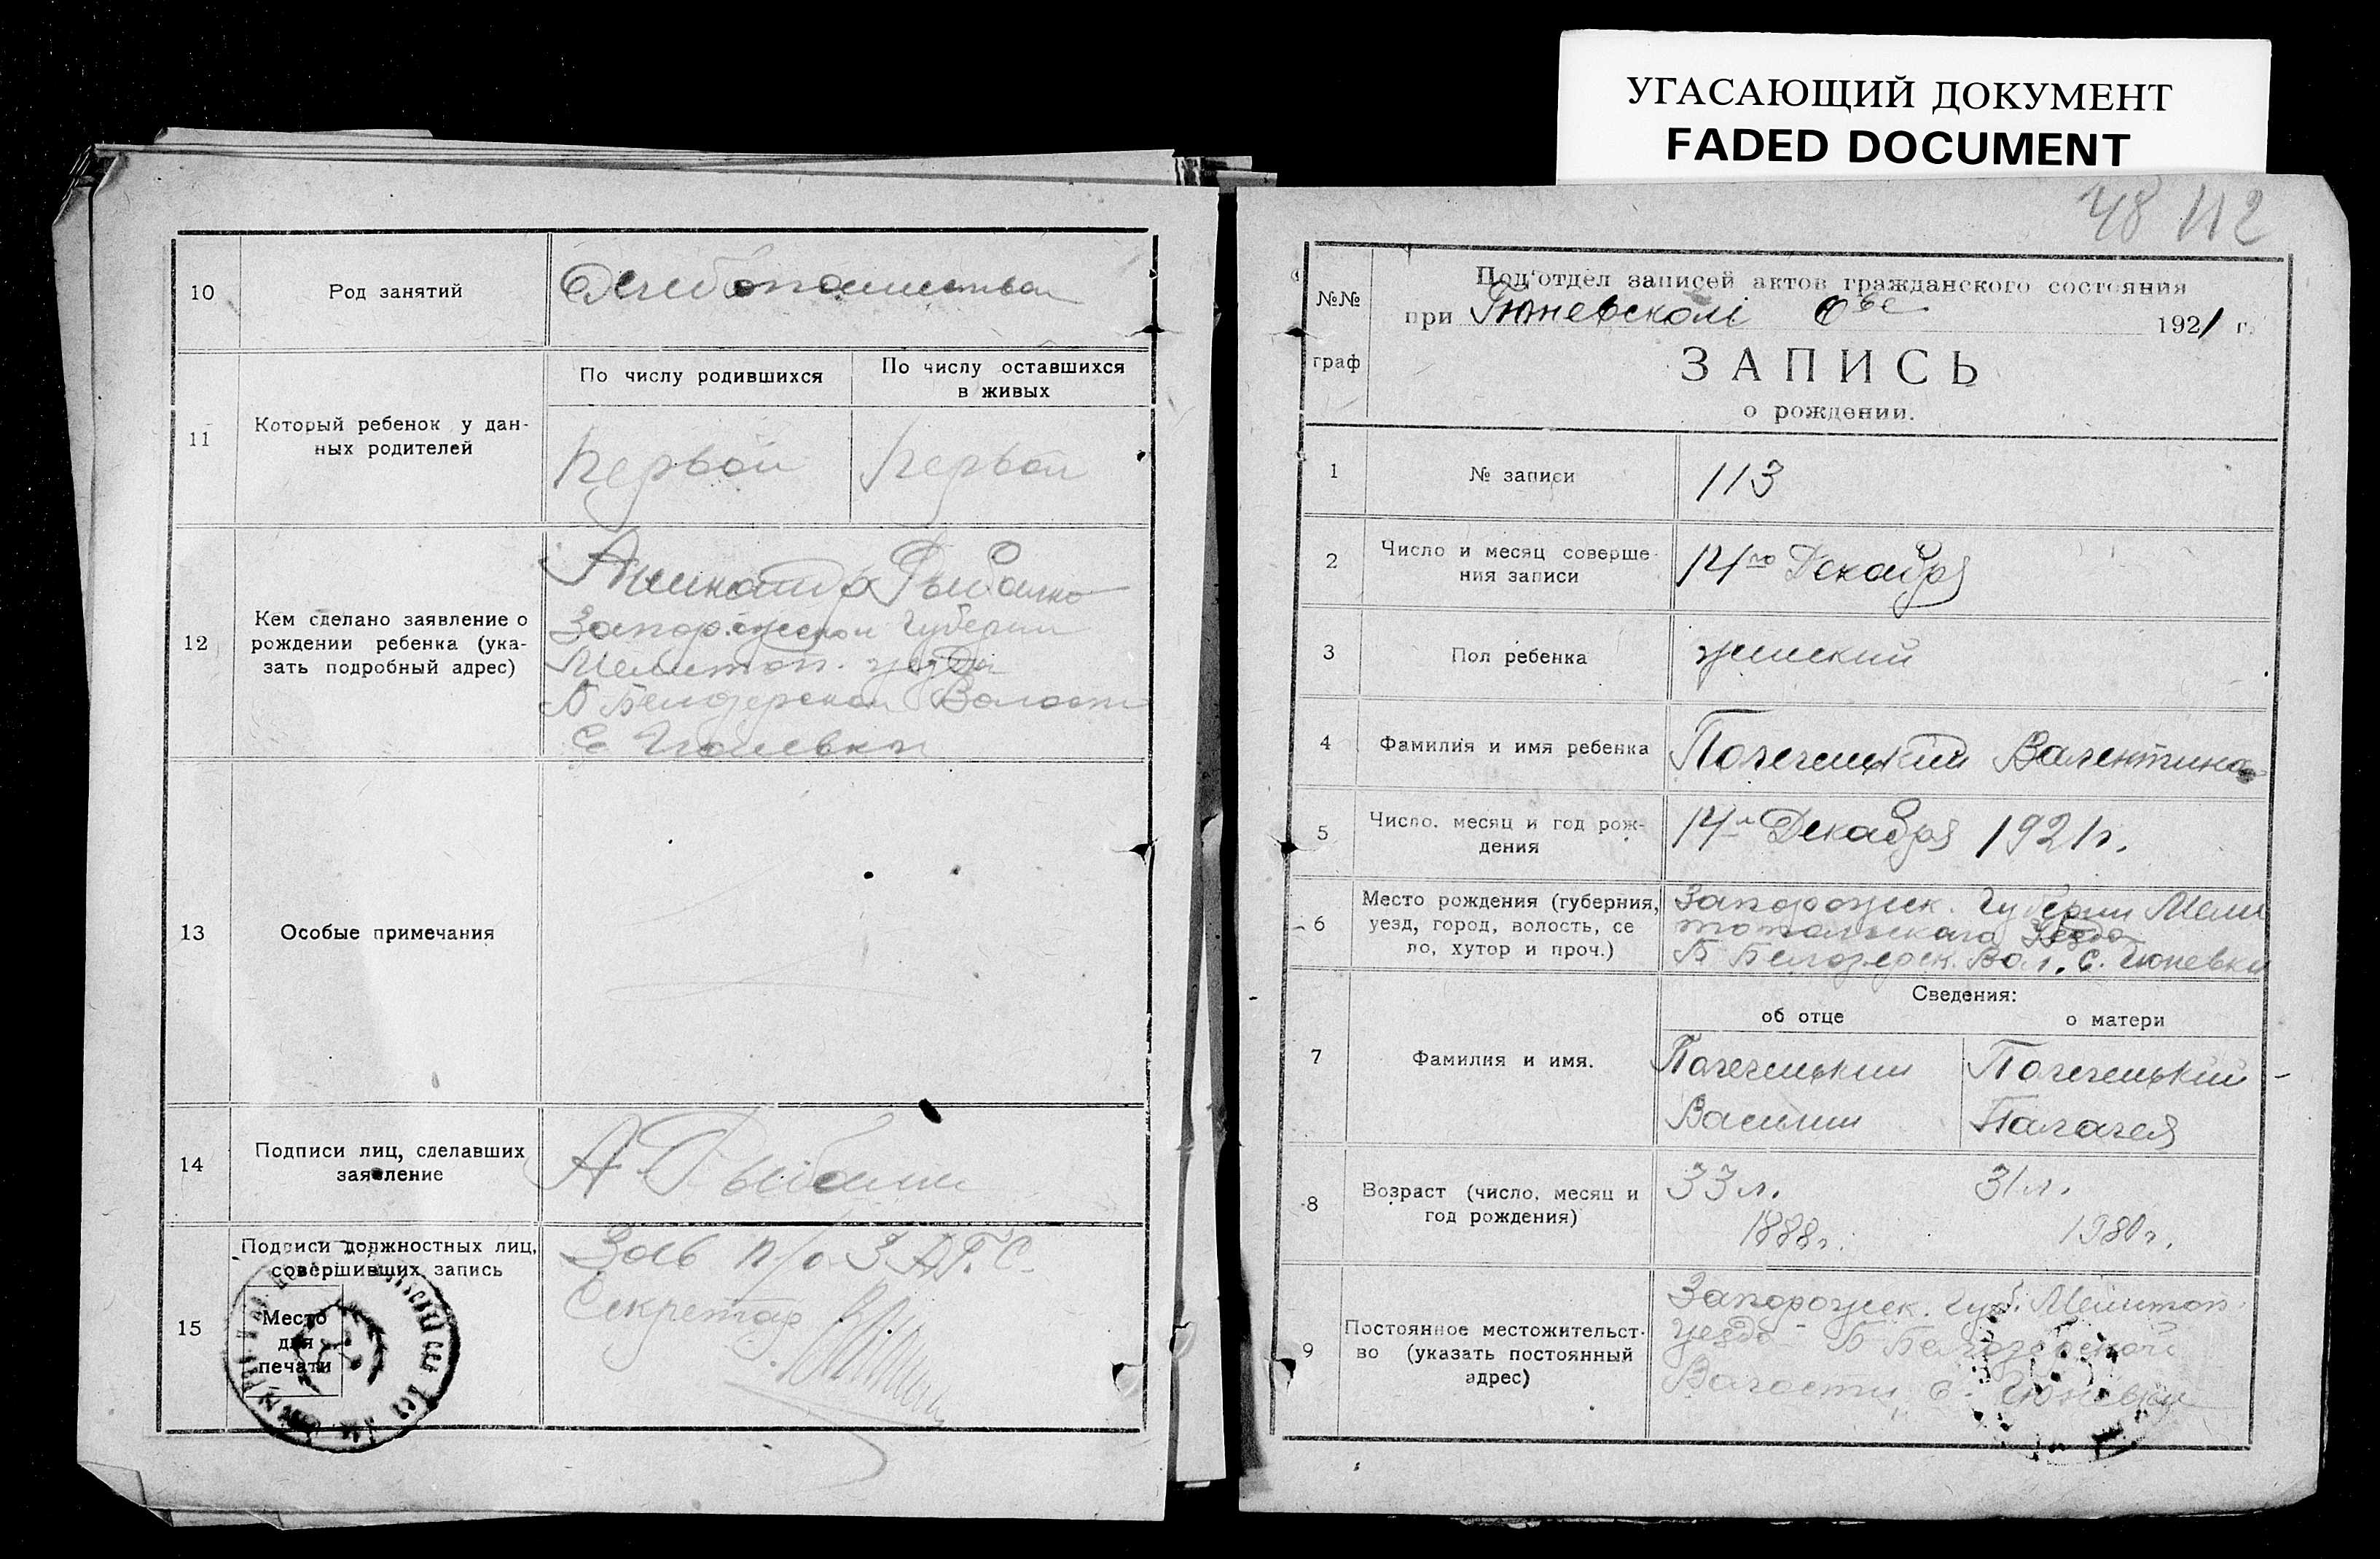 УГАСАЮЩИЙ ДОКУМЕНТ
FADED DOCUMENT
10
Род занятий
11
Который ребенок у дан-
ных родителей
По числу родившихся
По числу оставшихся
в живых
первой
первой
12
Кем сделано заявление о
рождении ребенка (ука-
зать подробный адрес)
Рыбалко
Запорожской Губернии
Мелитоп. уезда
Б Белозерской Волости
С.
13
Особые примечания
14
Подписи лиц, сделавших
заявление
А Рыбалко
15
Подписи должностных лиц,
совершивших запись
Место
для
печати
Зав п/о З.А.Г.С.
Секретар
48 112
№№
граф
Под'отдел записей актов гражданского состояния
при Гюневской 1921 г.
ЗАПИСЬ
о рождении.
1
№ записи
113
2
Число и месяц соверше-
ния записи
14го Декабря
3
Пол ребенка
женский
4
Фамилия и имя ребенка
Валентина
5
Число, месяц и год рож-
дения
14 Декабря 1921г.
6
Место рождения (губерния,
уезд, город, волость, се
ло, хутор и проч.)
Запорожск. Губернии Мели
топольскаго Уезда
Б Белозерск. Вол. С. Гюневки
Сведения:
об отце
о матери
7
Фамилия и имя.
Василий
Палагея
8
Возраст (число, месяц и
год рождения)
33 л.
1888г.
31 л.
9
Постоянное местожительст-
во (указать постоянный
адрес)
Запорожск. Губ. Мелитоп.
уезда Б Белозерской
Волости с. Гюневки